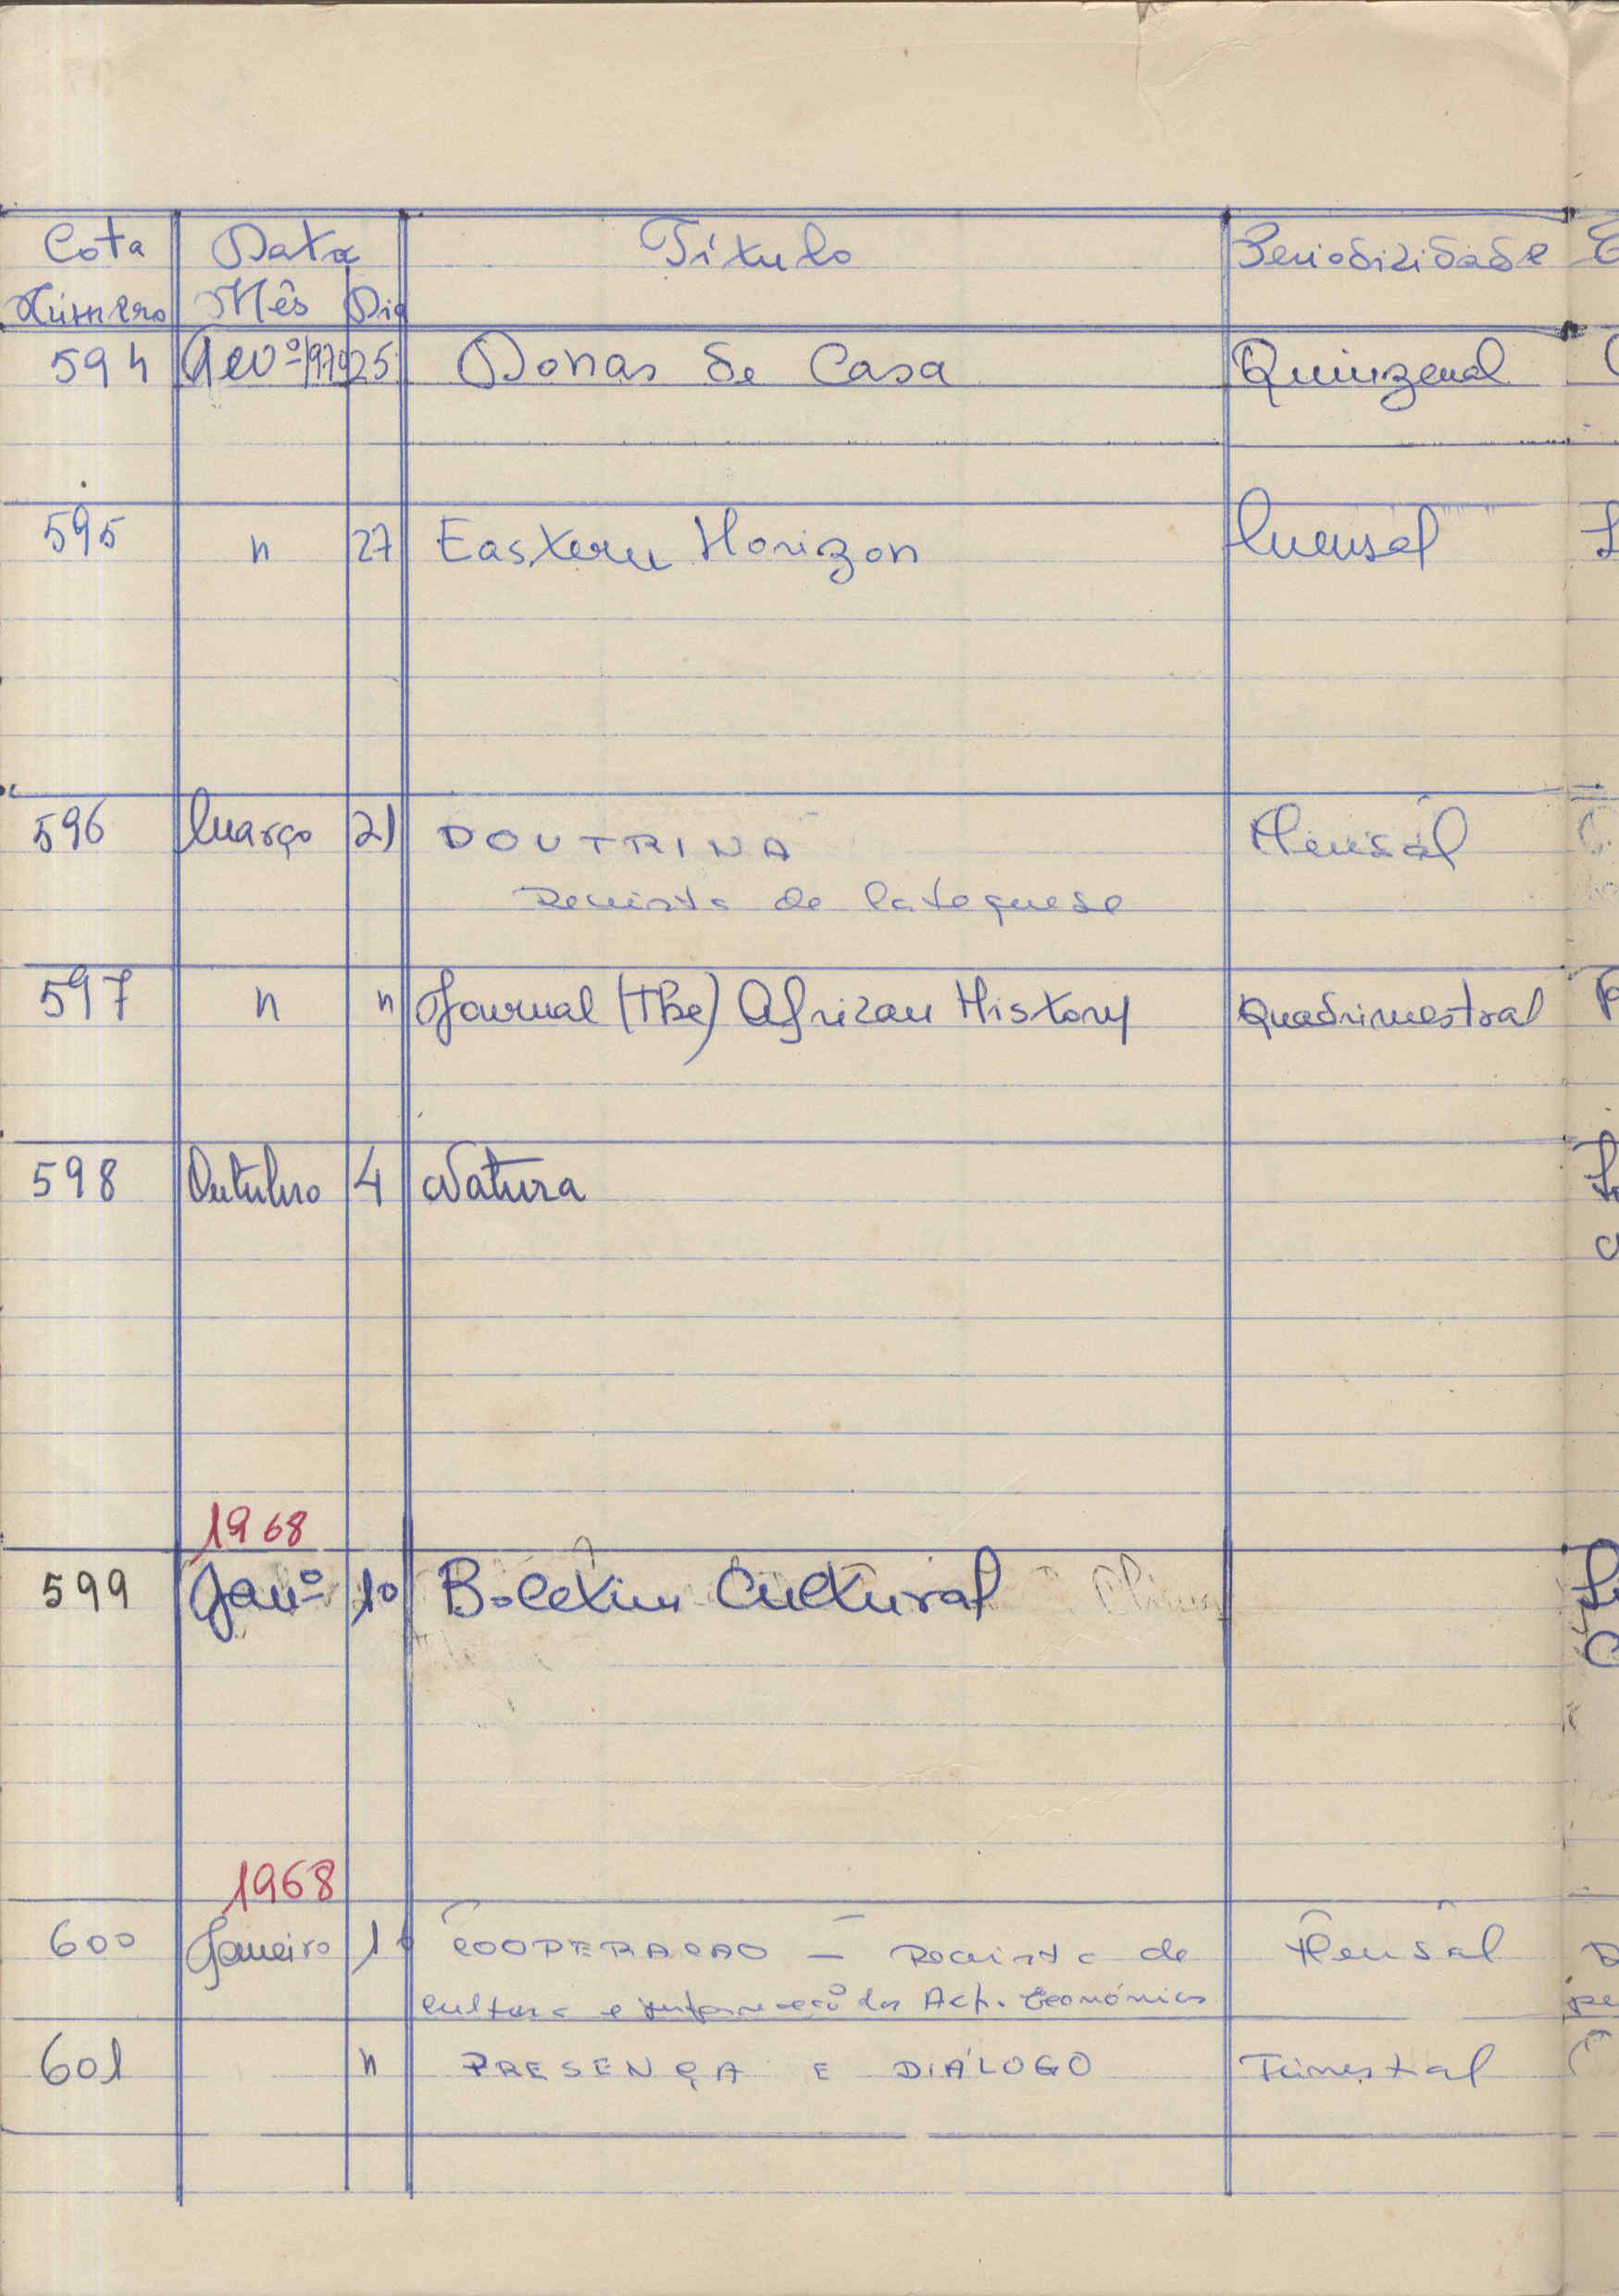 Cota Data Título Periodicidade
Número Mês Dia
594 25 Donas de Casa Quinzenal
595 " 27 Eastern Horizon Mensal
596 Março 21 DOUTRINA Mensal
Revista de Catequese
597 " " Journal (The) African History Quadrimestral
598 Outubro 4 Natura
1968
599 Janº 10 Boletim Cultural
1968
600 Janeiro COOPERAÇÃO — Revista de Mensal
cultura e informação das Act. Económicas
601 " PRESENÇA E DIÁLOGO Trimestral